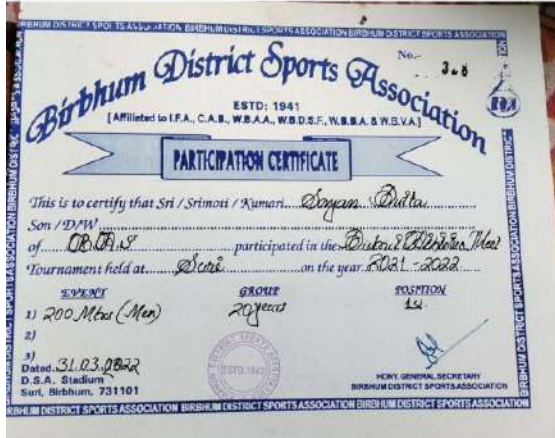 BIRBHUM DISTRICT SPORTS ASSOCIATION BIRBHUM DISTRICT SPORTS ASSOCIATION BIRBHUM DISTRICT SPORTS ASSOCIATION
No.-
Birbhum District Sports Association
ESTD: 1941
[Affiliated to I.F.A., C.A.B., W.B.A.A., W.B.D.S.F., W.B.B.A. & W.B.V.A.]
PARTICIPATION CERTIFICATE
This is to certify that Sri / Srimoti / Kumari Dutta
Son / D/W
of participated in the District Meet
Tournament held at on the year 2021 - 2022
EVENT GROUP POSITION
1) 200 Mtrs (Men) 20 years
2)
3)
Dated 31.03.2022
D.S.A. Stadium
Suri, Birbhum, 731101
HONY. GENERAL SECRETARY
BIRBHUM DISTRICT SPORTS ASSOCIATION
BIRBHUM DISTRICT SPORTS ASSOCIATION BIRBHUM DISTRICT SPORTS ASSOCIATION BIRBHUM DISTRICT SPORTS ASSOCIATION